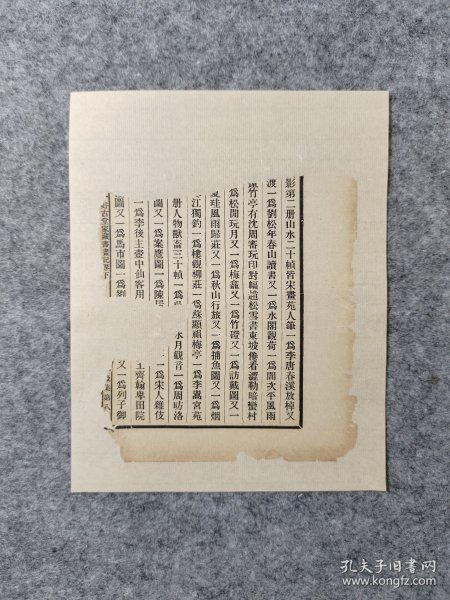 影第二册山水二十幀皆宋畫苑人筆一爲李唐春溪放棹又
渡一爲劉松年春山讀書又一爲水閣觀荷一爲閻次平風雨
竹亭有沈周審玩印對幅趙松雪書東坡倦看澀勒暗蠻村
爲松閒玩月又一爲梅龕又一爲竹磴又一爲訪戴圖又一
風雨歸莊又一爲秋山行旅又一爲捕魚圖又一爲烟
江獨釣一爲樓觀柳莊一爲蘇顯祖梅亭一爲李嵩宮苑
册人物獸畜三十幀一爲
水月觀音一爲周昉洛
圖又一爲案鷹圖一爲陳居
一爲宋人雜伎
一爲李後主壺中仙客用
王齊翰舉田院
圖又一爲馬市圖一爲
又一爲列子御
好古堂家藏書畫記卷下
孔夫子旧书网
www.kongfz.com